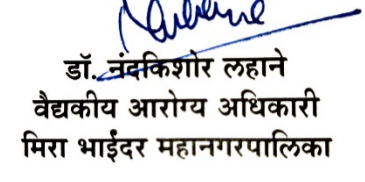 डॉ. नंदकिशोर लहाने
वैद्यकीय आरोग्य अधिकारी
मिरा भाईंदर महानगरपालिका